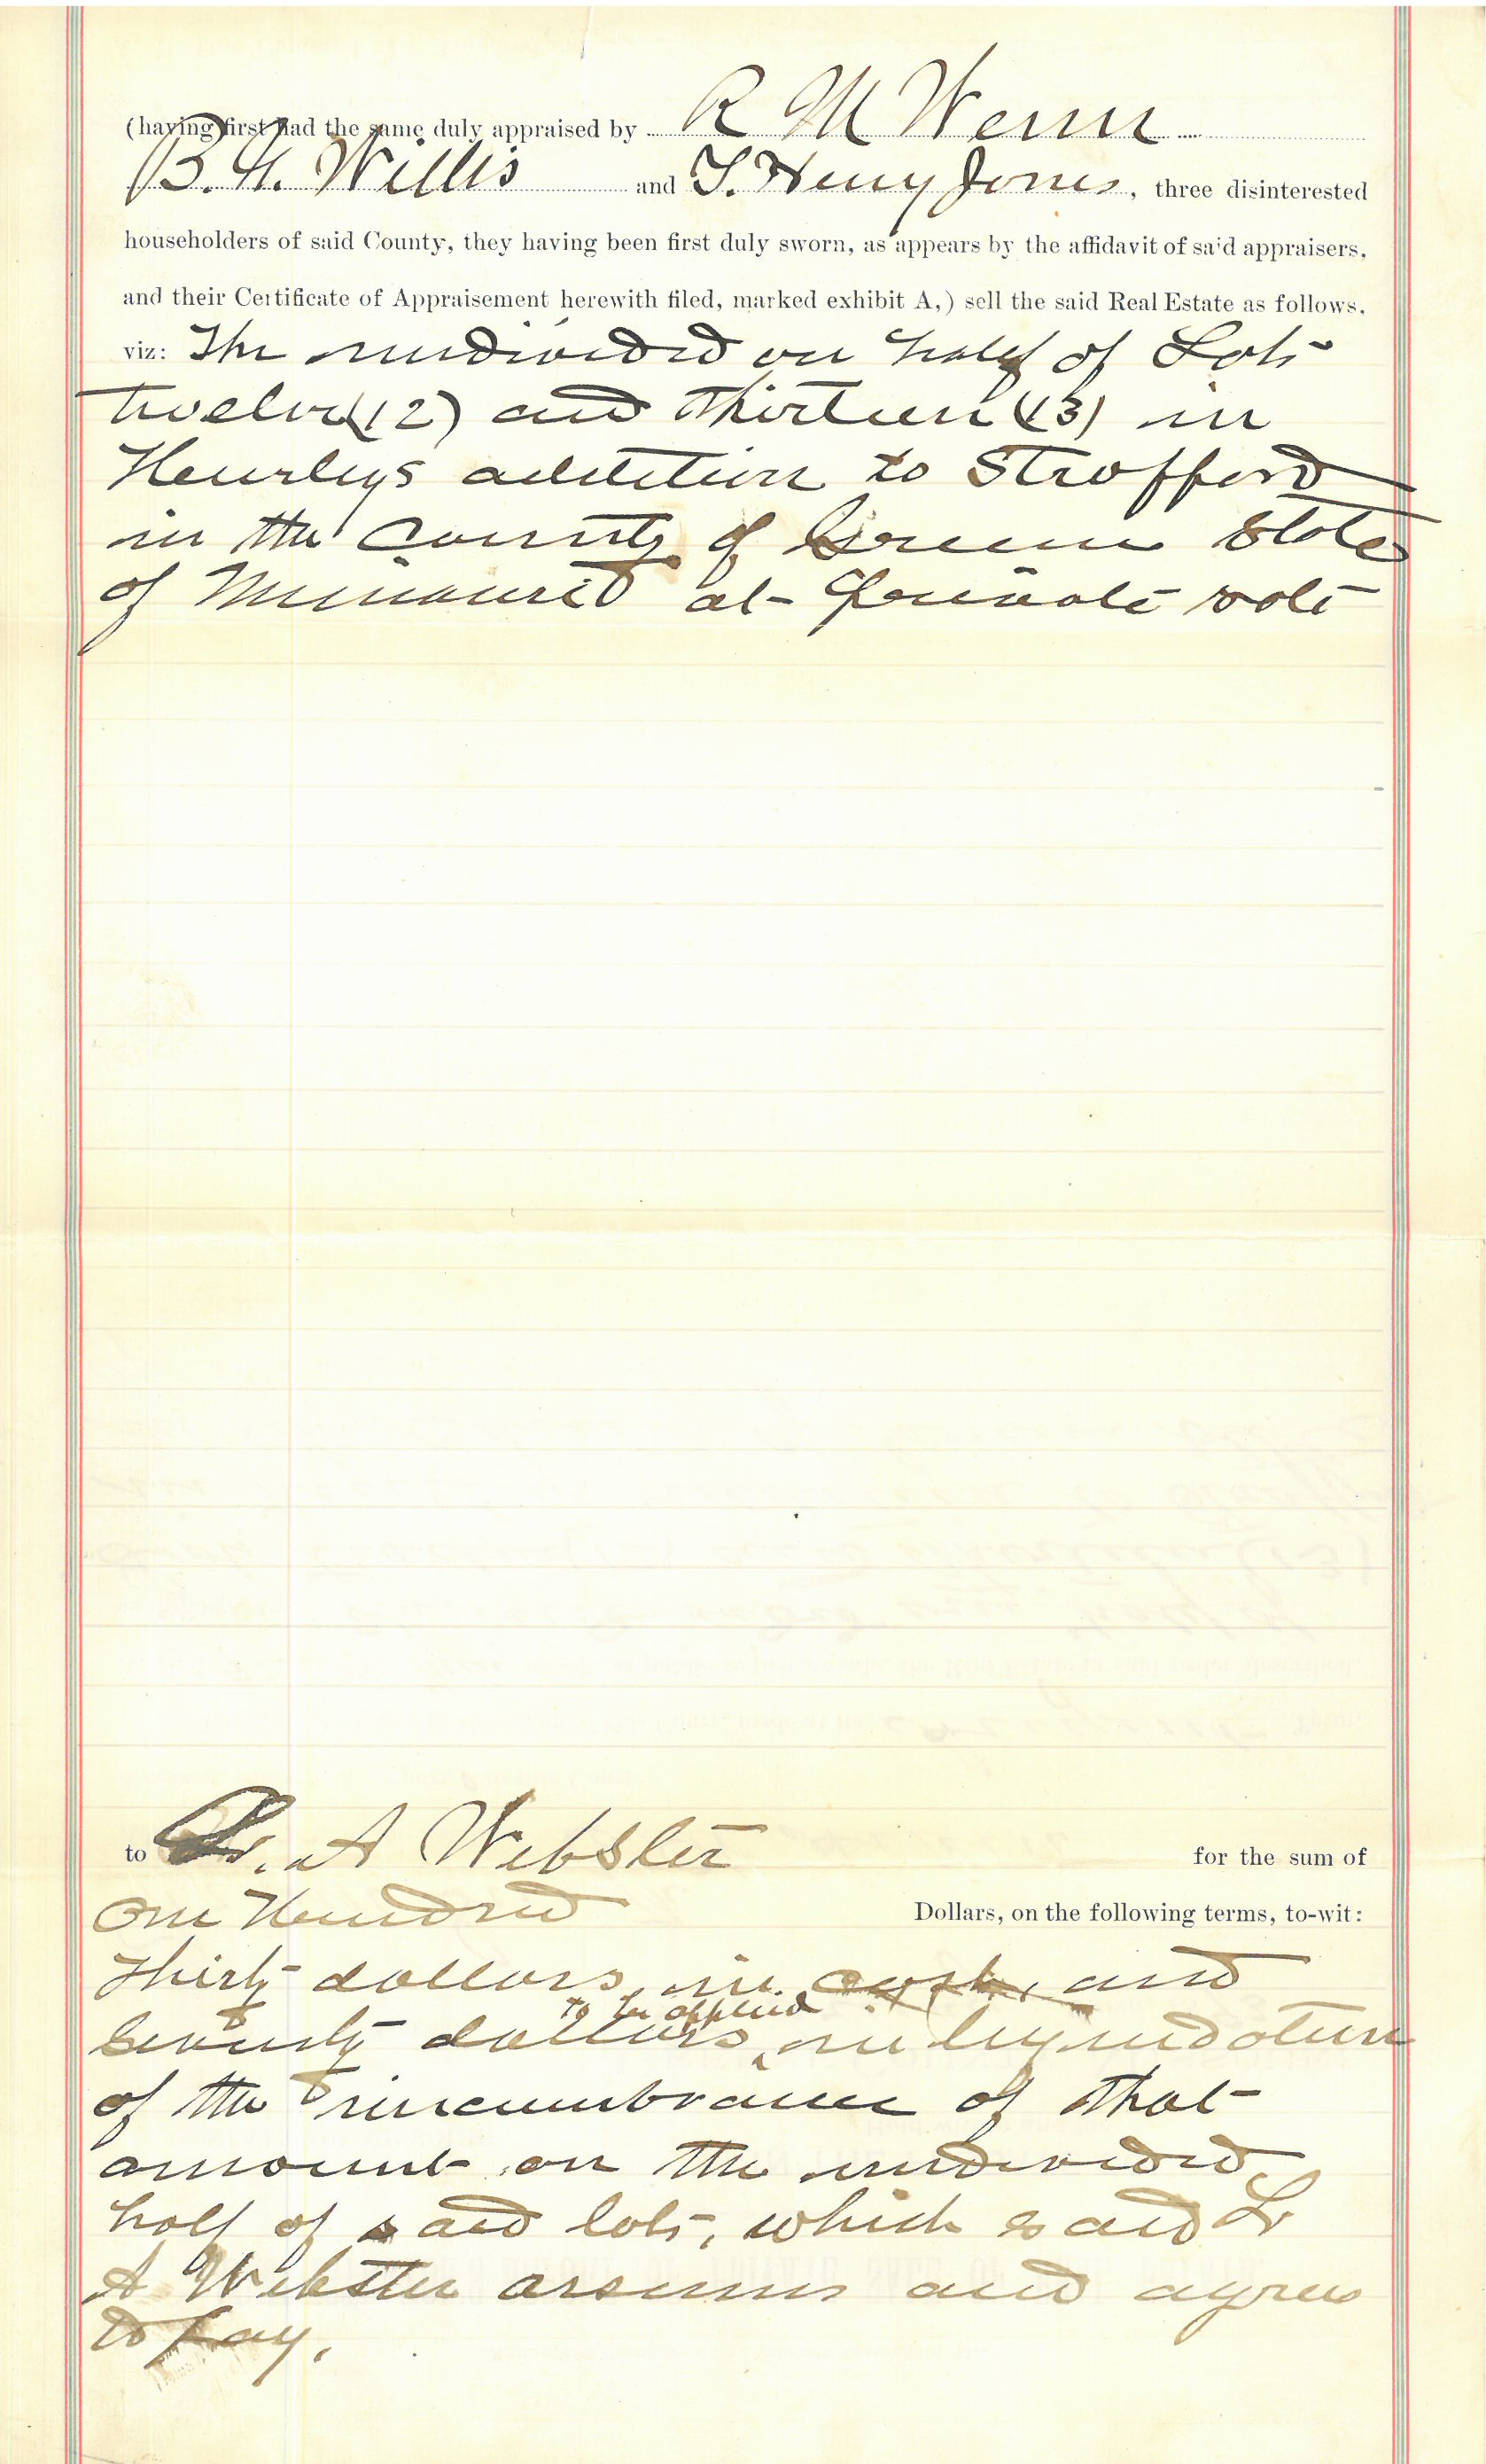 (having first had the same duly appraised by R M Wenn
B. H. Willis and T. Henry Jones, three disinterested
householders of said County, they having been first duly sworn, as appears by the affidavit of said appraisers,
and their Certificate of Appraisement herewith filed, marked exhibit A,) sell the said Real Estate as follows,
viz: The undivided one half of Lots
twelve (12) and thirteen (13) in
addition to Strafford
in the county of Greene State
of Missouri at Private sale
to L. A Webster for the sum of
One Hundred Dollars, on the following terms, to-wit:
Thirty dollars, in cash, and
to be applied
seventy dollars, in liquidation
of the incumbrance of that
amount on the undivided
half of said lots, which said L
A Webster assumes and agrees
to pay.